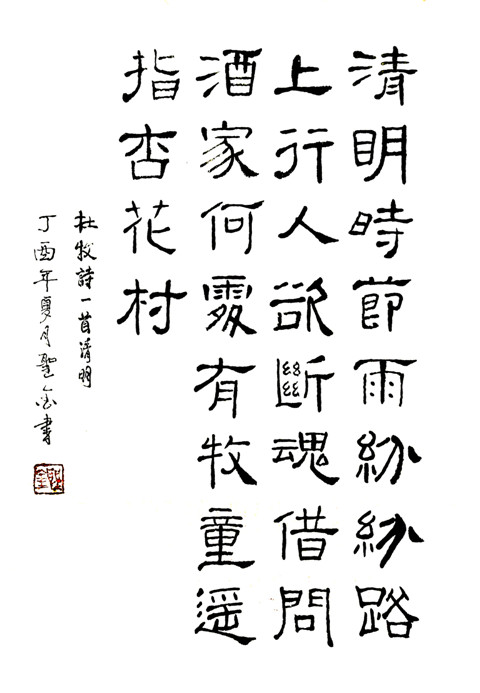 清明時節雨紛紛路
上行人欲斷魂借問
酒家何處有牧童遥
指杏花村
杜牧詩一首清明
丁酉年夏月聖金書